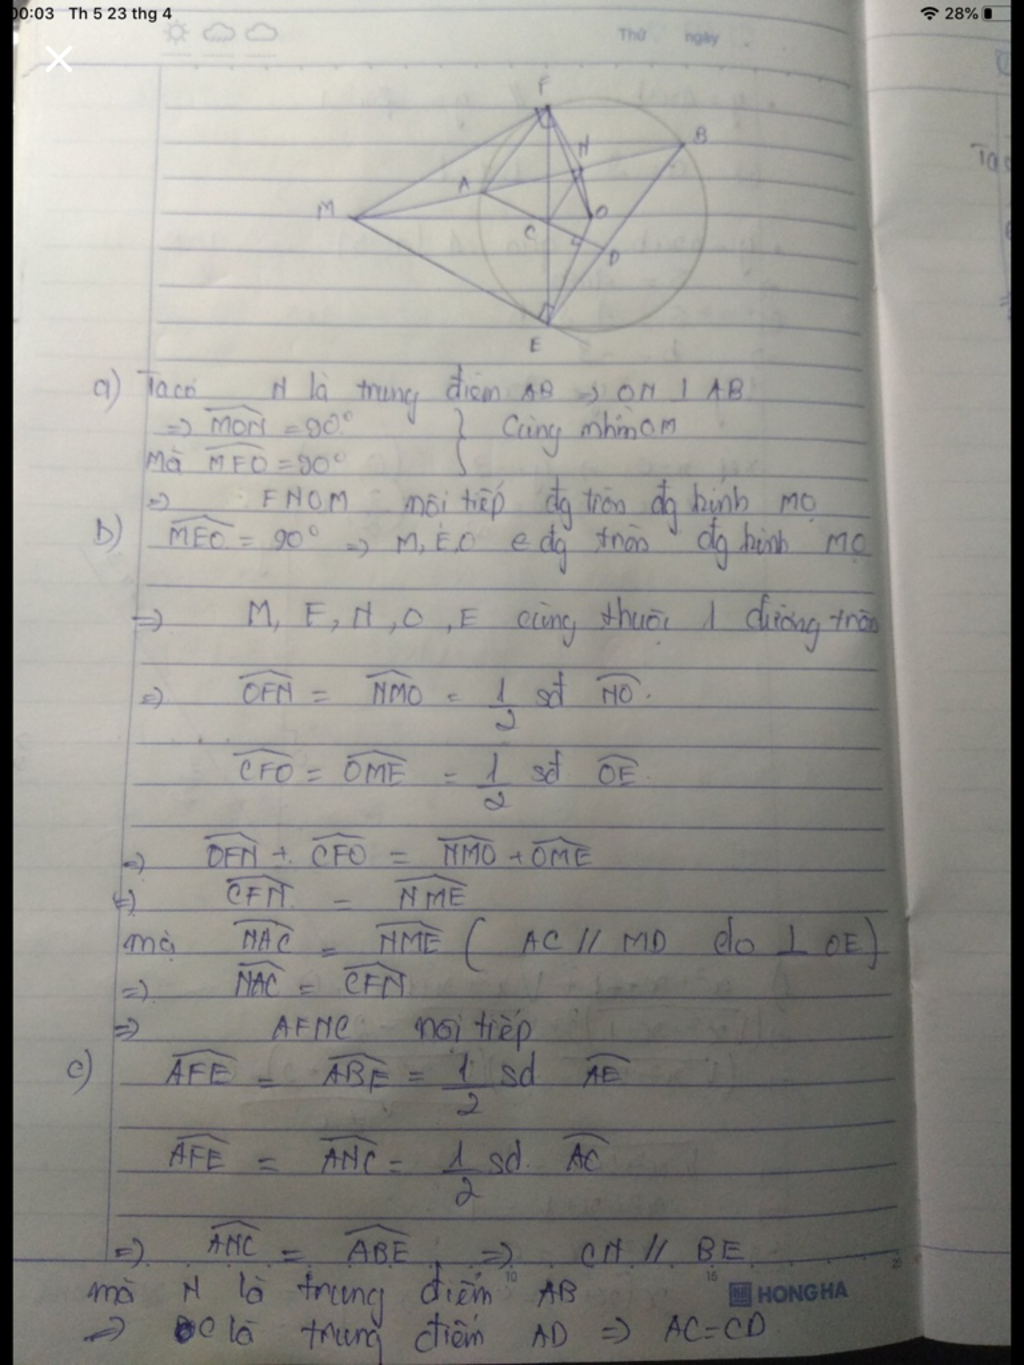 00:03 Th 5 23 thg 4 28%
Thứ ngày
F
B
N
A
M
O
C
D
E
a) Ta có N là trung điểm AB => ON ⊥ AB
=> MON = 90° } Cùng nhìn OM
Mà MFO = 90°
=> FNOM nội tiếp đg tròn đg kính MO
b) MEO = 90° => M, E, O ∈ đg tròn đg kính MO
=> M, F, N, O, E cùng thuộc 1 đường tròn
=> OFN = NMO = 1/2 sđ NO.
CFO = OME = 1/2 sđ OE.
=> OFN + CFO = NMO + OME
=> CFN = NME
mà NAC = NME ( AC // MD do ⊥ OE )
=> NAC = CFN
=> AFNC nội tiếp
c) AFE = ABE = 1/2 sđ AE
AFE = ANC = 1/2 sđ. AC
=> ANC = ABE => CN // BE
10 15 20
mà N là trung điểm AB
HONG HA
=> C là trung điểm AD => AC = CD